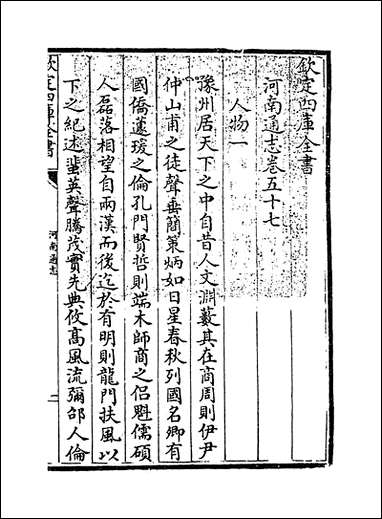 欽定四庫全書
河南通志卷五十七
人物一
豫州居天下之中自昔人文淵藪其在商周則伊尹
仲山甫之徒聲垂簡策炳如日星春秋列國名卿有
國僑蘧瑗之倫孔門賢哲則端木師商之侣魁儒碩
人磊落相望自兩漢而後迄於有明則龍門扶風以
下之紀述蜚英聲騰茂實先典攸髙風流彌邵人倫
欽定四庫全書
河南通志
一